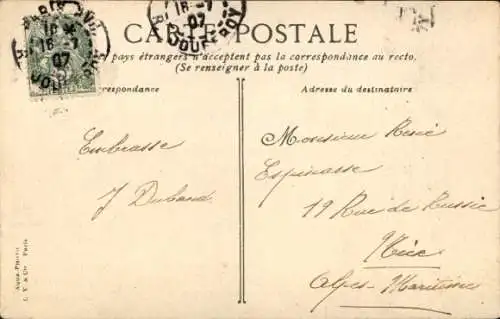 CARTE POSTALE
pays étrangers n'acceptent pas la correspondance au recto.
(Se renseigner à la poste)
respondance
Adresse du destinataire
16-1
07
16-1
07
PARIS
R. DUFRENOY
Embrasse
J Duband
Monsieur René
Espinasse
19 Rue de Russie
Nice
Alpes-Maritime
Aqua-Photo
L. V. & Cie Paris